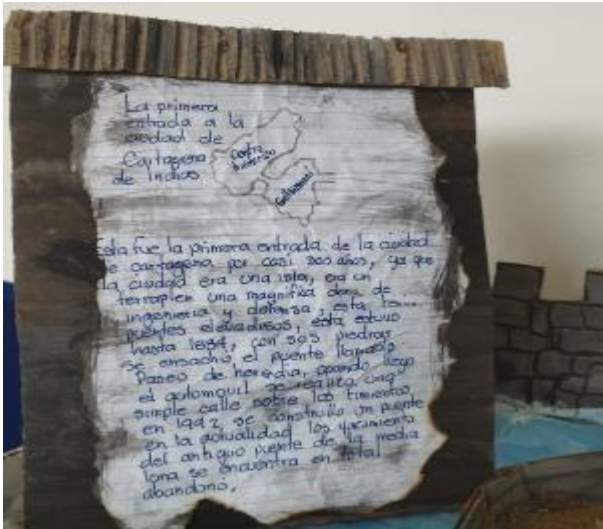 La primera
entrada a la
ciudad de
Cartagena
de Indias
Centro
historico
Getsemani
Esta fue la primera entrada de la ciudad
de cartagena por casi 300 años, ya que
la ciudad era una isla, era un
terraplen una magnifica obra de
ingenieria y defensa, esta
puentes elevadisos, esta estuvo
hasta con sos piedras
se ensacho el puente llamado
Paseo de heredia, quando llego
el automouil se realizo una
simple calle sobre los
en 1992 se construllo un puente
en la actualidad los
del antiguo puente de la media
luna se encuentra en total
abandono.